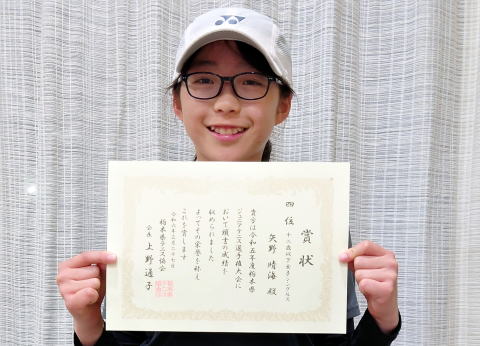 賞状
四位
十二歳以下女子シングルス
矢野 晴海 殿
貴方は令和五年度栃木県
ジュニアテニス選手権大会に
おいて頭書の成績を
収められました
よってその栄誉を称え
これを賞します
令和六年三月二十七日
栃木県テニス協会
会長 上野通子